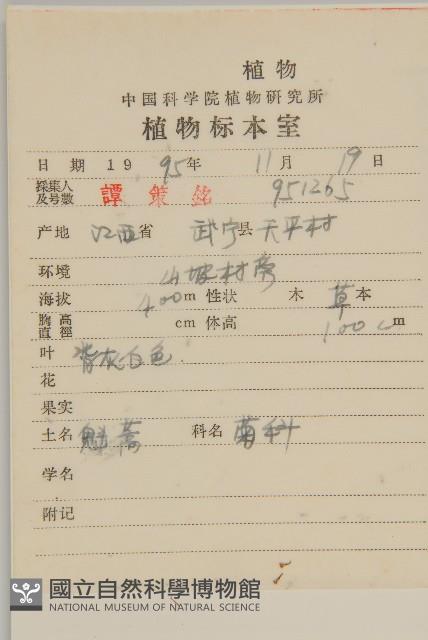 植物
中国科学院植物研究所
植物标本室
日 期 1995年 11月 19日
採集人及号数 譚策铭 951265
产地 江西省 武宁县天平村
环境 山坡村旁
海拔 400m 性状 木 草本
胸高直徑 cm 体高 100cm
叶 背灰白色
花
果实
土名 魁蒿 科名 菊科
学名
附记
國立自然科學博物館
NATIONAL MUSEUM OF NATURAL SCIENCE